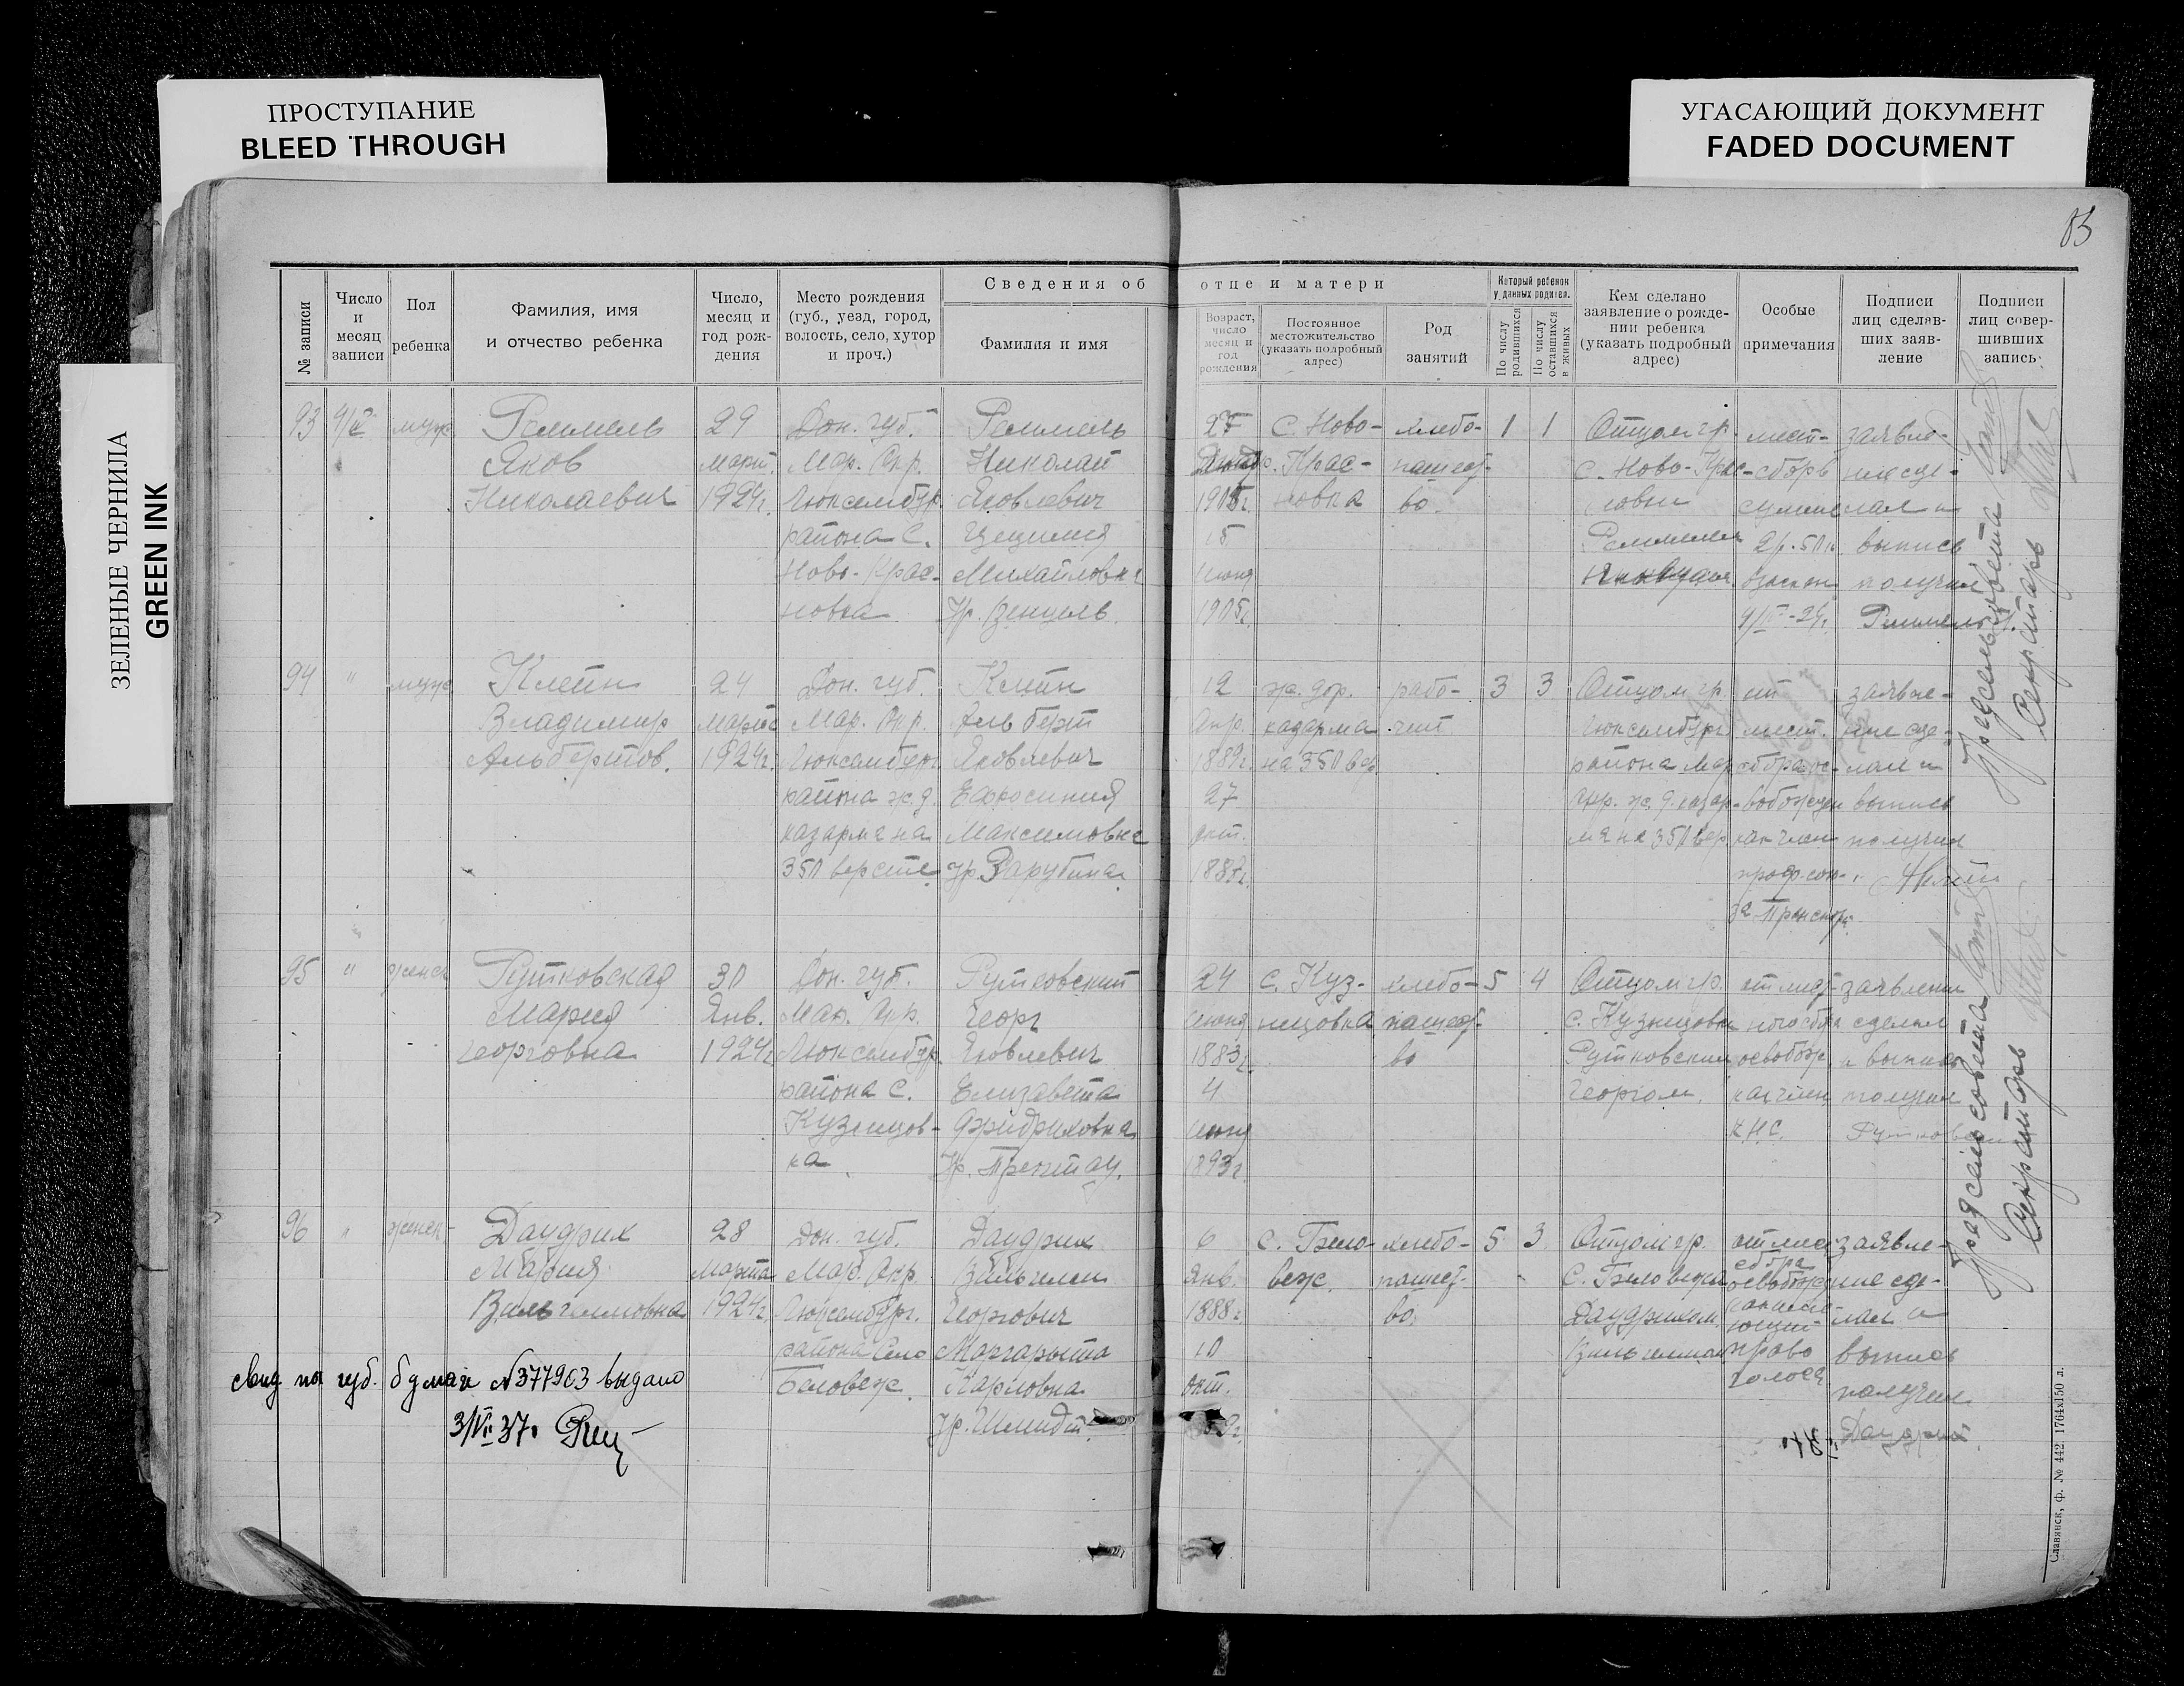 ПРОСТУПАНИЕ
BLEED THROUGH
УГАСАЮЩИЙ ДОКУМЕНТ
FADED DOCUMENT
ЗЕЛЕНЫЕ ЧЕРНИЛА
GREEN INK
83
№ записи
Число и месяц записи
Пол ребенка
Фамилия, имя и отчество ребенка
Число, месяц и год рождения
Место рождения (губ., уезд, город, волость, село, хутор и проч.)
Сведения об отце и матери
Фамилия и имя
Возраст, число месяц и год рождения
Постоянное местожительство (указать подробный адрес)
Род занятий
Который ребенок у данных родител.
По числу родившихся
По числу оставшихся в живых
Кем сделано заявление о рождении ребенка (указать подробный адрес)
Особые примечания
Подписи лиц сделавших заявление
Подписи лиц совершивших запись
93
муж
Реммель
Яков
Николаевич
29
март.
1924г.
Дон. губ.
Мар. Окр.
Люксембур.
района С.
Ново-Крас-
новка
Реммель
Николай
Яковлевич
Цецилия
Михайловна
Ур. Венцель
27
1905г.
15
июня
1905г.
С. Ново-
Крас-
новка
хлебо-
пашест-
во.
1
1
Отцом гр.
с. Ново-Крас-
новки
мест-
сбор
2р. 50к.
заявле-
ние сде-
лал и
выпись
получил
Реммель
94
"
муж.
Клейн
Владимир
Альбертов.
24
марта
1924г.
Дон. губ.
Мар. Окр.
Люксембург
района ж.д.
казарма на
350 версте
Клейн
Альберт
Яковлевич
Ефросиния
Максимовна
ур. Зарубина
12
Апр.
1889г.
27
окт.
1887г.
ж. дор.
казарма
на 350 вер.
рабо-
чий
3
3
Отцом гр.
Люксембург
района Мар
Окр. ж. д. казар-
ма на 350 вер
от
мест.
сбора ос-
вобожден
как член
проф. сою-
за Транспор.
заявле-
ние сде-
лал и
выпись
получил
95
"
женск
Рутковская
Мария
Георговна
30
Янв.
1924г
Дон. губ.
Мар. Окр.
Люксембур.
района С.
Кузнецов-
ка
Рутковский
Георг
Яковлевич
Елизавета
Фридриховна
24
июня
1883г.
4
июня
1893г.
с. Куз-
нецовка
хлебо-
пашест-
во
5
4
Отцом гр.
с. Кузнецовки
Рутковским
Георгом.
от мест-
ного сбора
освобож.
как член
К.Н.С.
заявление
сделал
и выпись
получил
Рутковский
96
"
женск-
Даудрих
Мария
Вильгельмовна
28
марта
1924г.
Дон. губ.
Мар. Окр.
Люксембург.
района Село
Беловеж.
Даудрих
Вильгельм
Георгович
Маргарыта
Карловна
Ур. Шмидт
6
Янв.
1888г.
10
окт.
с. Бело-
веж.
хлебо-
пашест-
во.
5
3
Отцом гр.
с. Беловежи
Даудрихом
Вильгельмом
от мест
сбора
право
голоса
заявле-
ние сде-
лал и
выпись
получил
Даудрих
Предсельсовета
Секретарь
Предсельсовета
Секретарь
свид на губ. бумаги №377903 выдано
Славянск, ф. № 442. 1764x150 л.